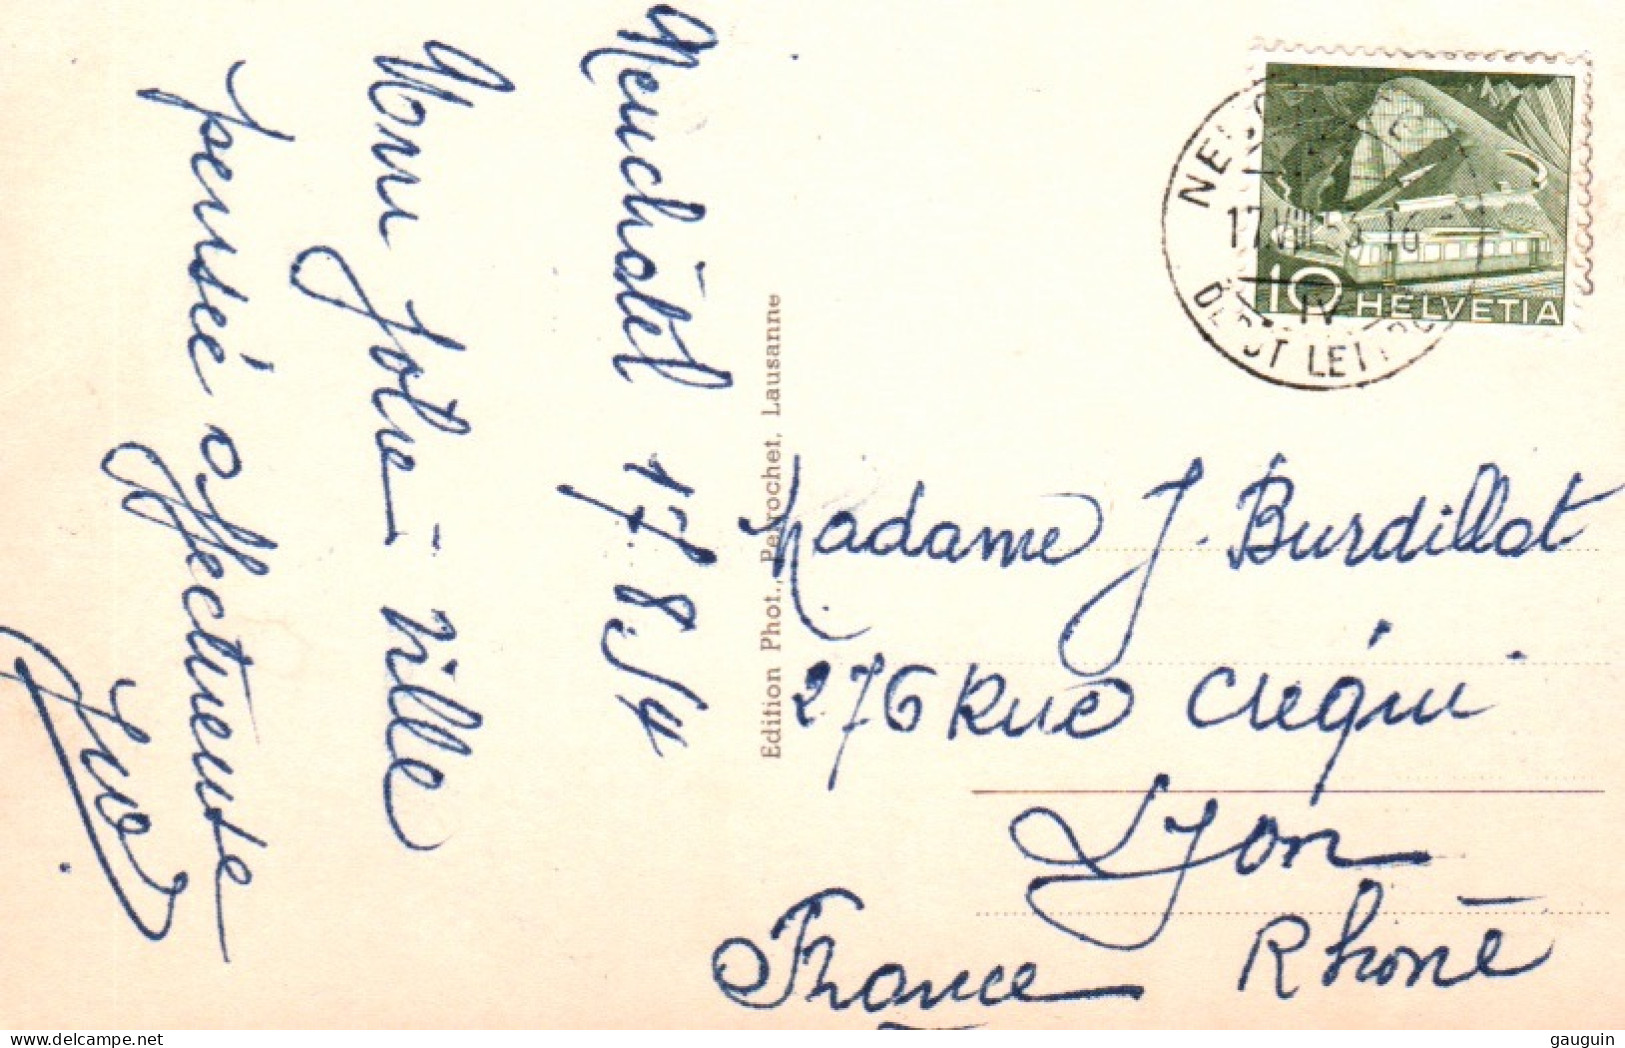 Neuchâtel 17.8.54
Une jolie ville
pensée affectueuse
Edition Phot., Perrochet, Lausanne
17.VIII.53.16
DEPOT LETTRES
10 HELVETIA
Madame J. Burdillat
276 Rue Crequi
Lyon
Rhone
France
delcampe.net
gauguin